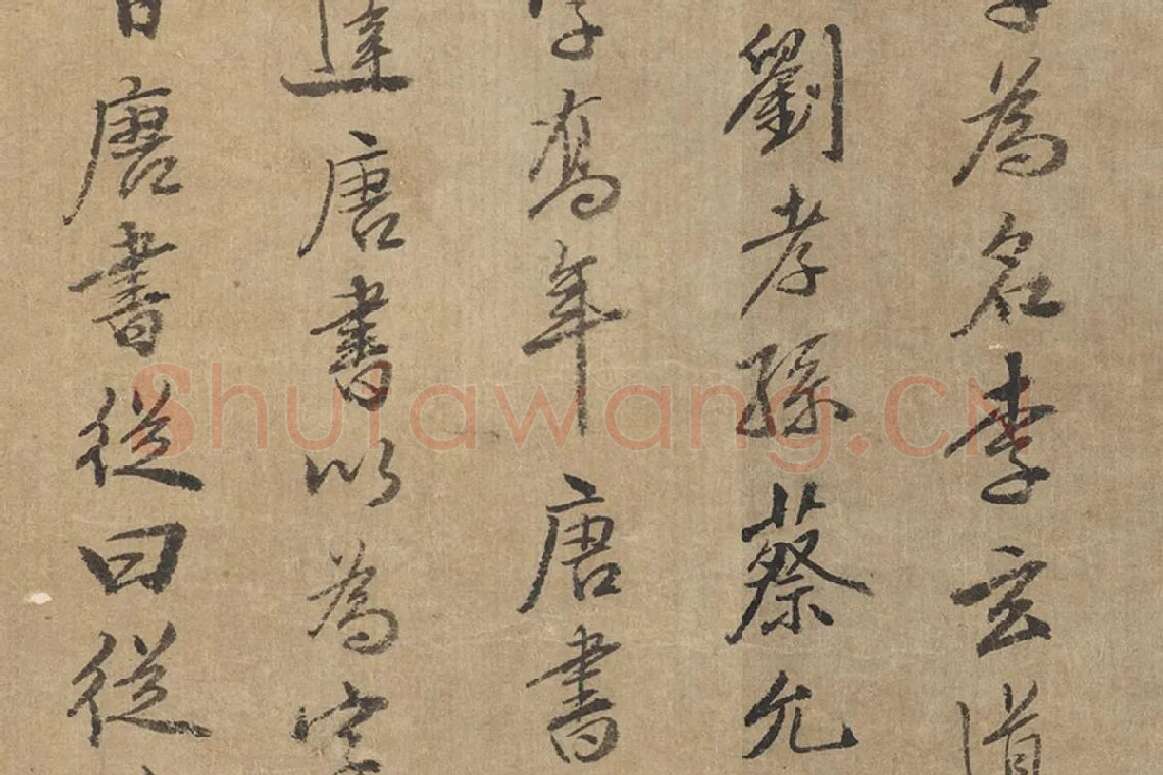 為名李玄道
劉孝孫蔡允
年唐書
達唐書以為字
唐書從曰從
Shufawang.CN